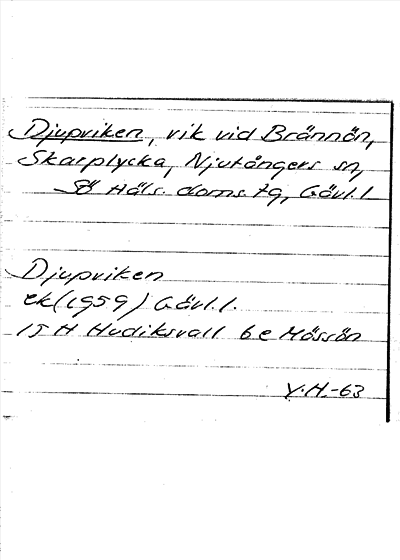 Djupviken, vik vid Brännön,
Skarplycka, Njutångers sn,
Sö Häls. doms. tg, Gävl. l
Djupviken
ek (1959) Gävl. l.
15 H Hudiksvall 6 e Mössön
Y.H.-63